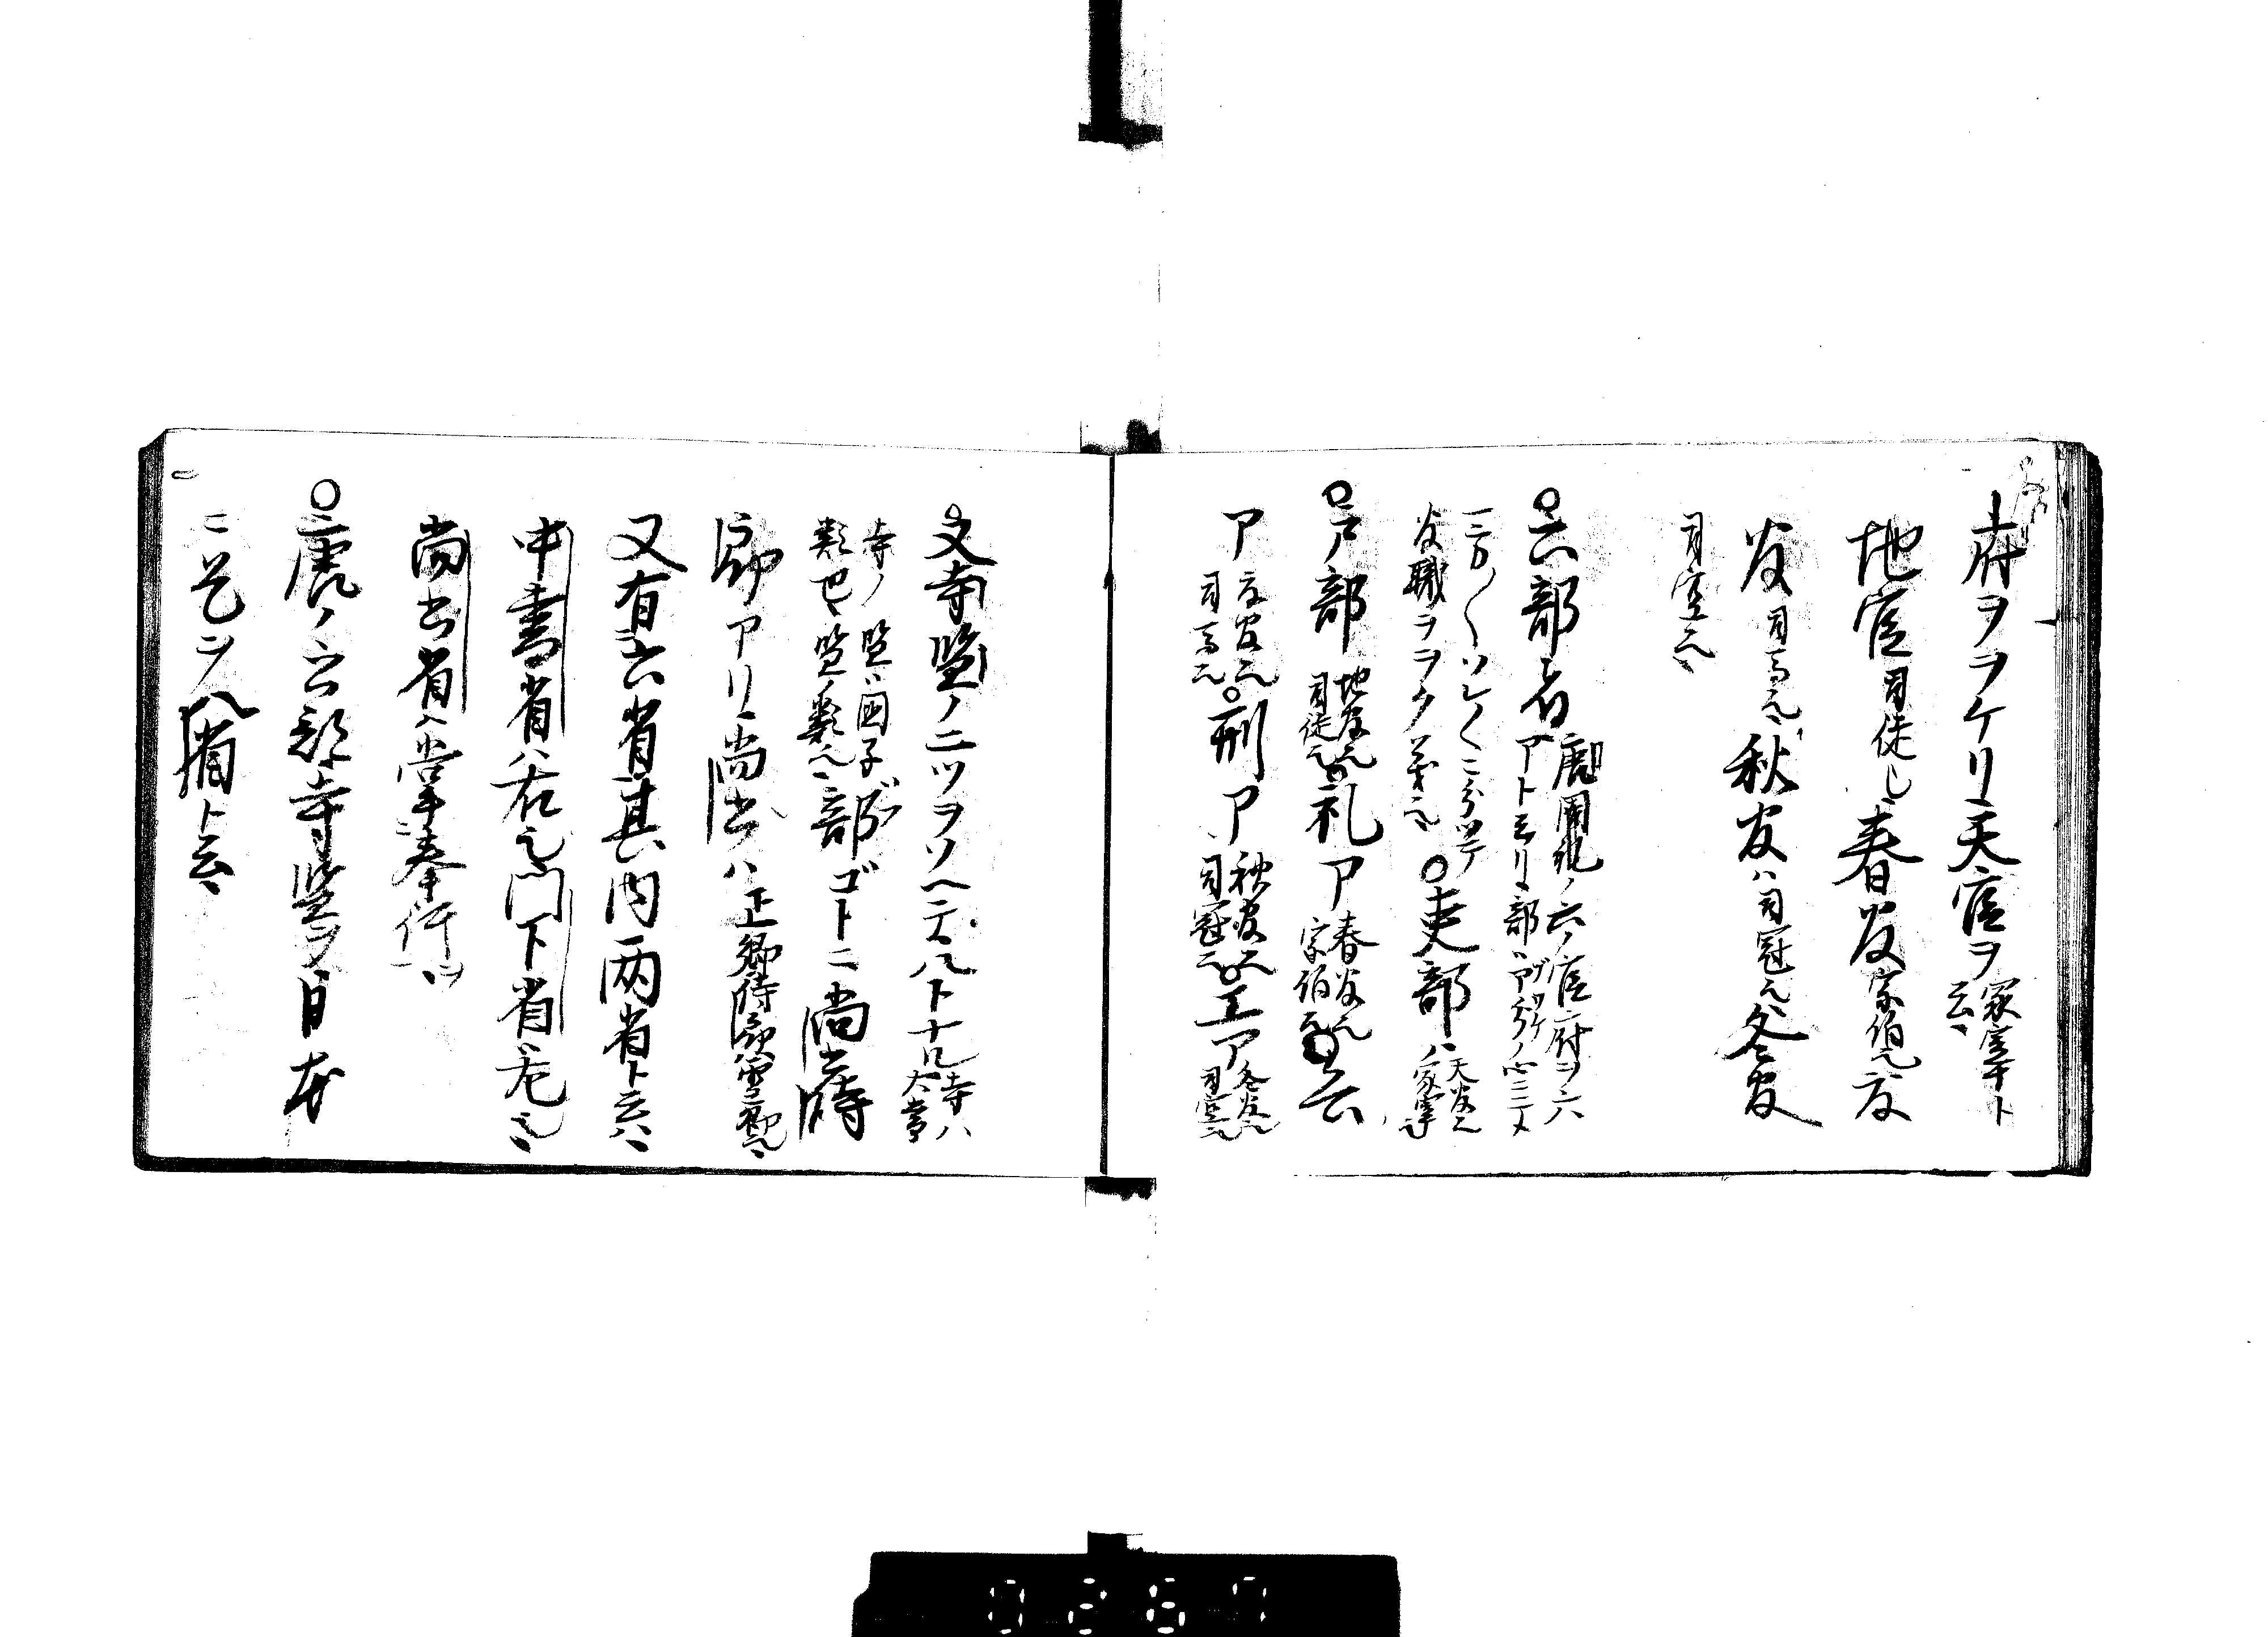 府ヲヲケリ天官ヲ冢宰ト云、
地官司徒也、春官宗伯也、夏
官司馬也、秋官ハ司寇也、冬官
司空也、
○六部者唐周礼ノ六官府ヲ六
アトミエリ部ノ心ニ
官職ヲヲク義也○吏部ハ天官也冢宰也
○戸部地官也司徒也○礼ア春官也宗伯也○兵
ア夏官也司馬也○刑ア秋官也司寇也○工ア冬官也司空也
又寺監ノ二ツヲソヘテ八ト十ル寺ハ太常
寺ノ類也、監ハ国子監ノ類也、部ゴトニ尚書侍
郎アリ、尚書ハ正卿侍郎ハ亜卿也、
又有六省其内両省ト云ハ、
中書省ハ右也門下省ハ左也、
尚書省ハ掌奉行、
○唐ノ六部寺監ヲ日本
ニ是ヲ八省ト云、